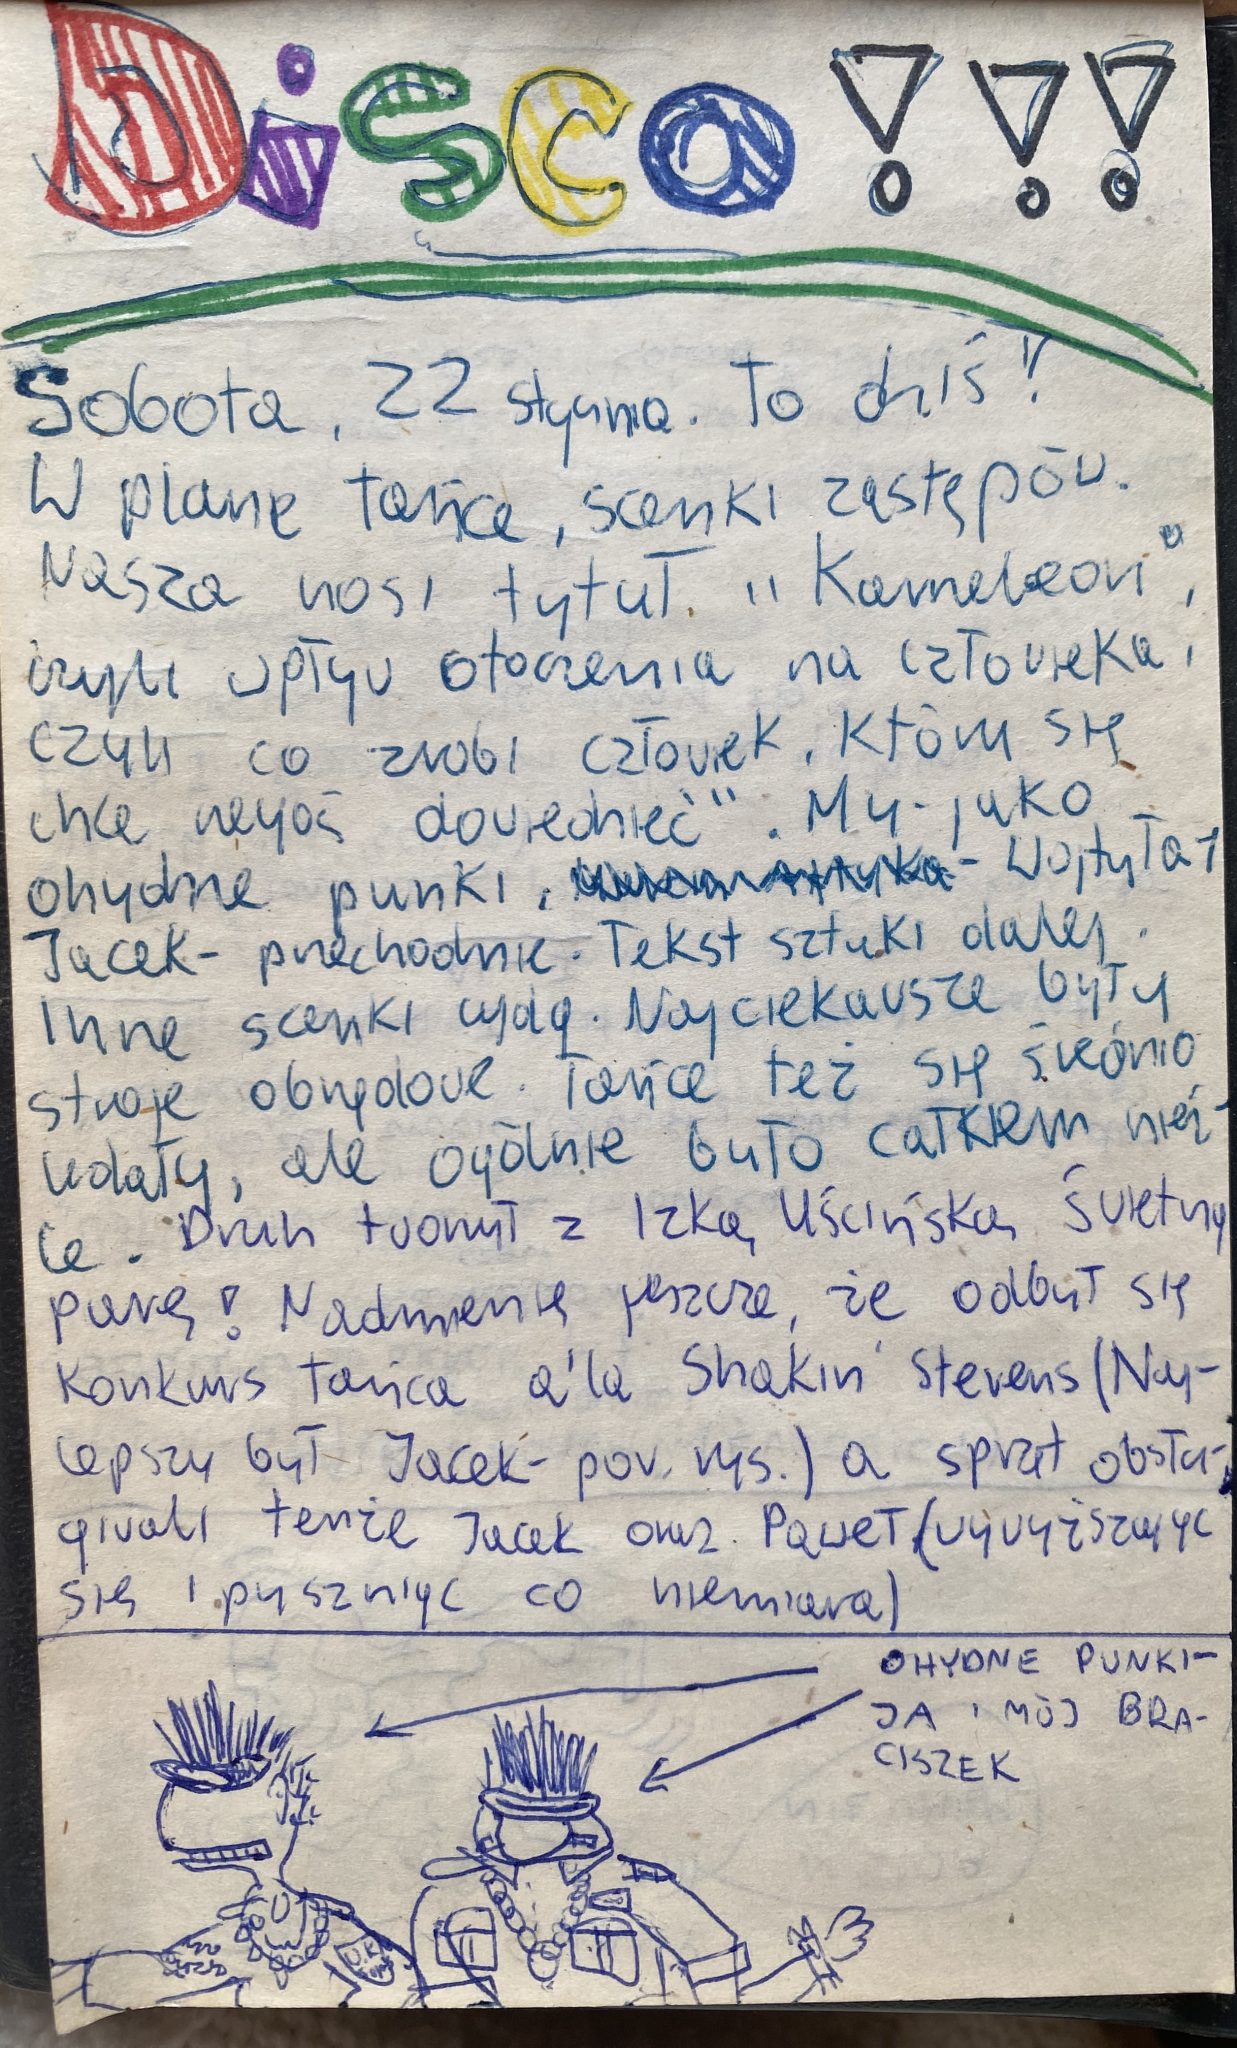 Disco !!!
Sobota, 22 stycznia. To dziś!
W planie tańce, scenki zastępów.
Nasza nosi tytuł "Kameleon",
czyli wpływ otoczenia na człowieka,
czyli co zrobi człowiek, który się
chce czegoś dowiedzieć". My-jako
ohydne punki, - Wojtyła i
Jacek- przechodnie. Tekst sztuki dalej.
Inne scenki wyjdą. Najciekawsze były
stroje obrzędowe. Tańce też się średnio
udały, ale ogólnie było całkiem nieź-
le. Druh tworzył z Izką Uścińską świetną
parę! Nadmienię jeszcze, że odbył się
konkurs tańca a'la Shakin' Stevens (Naj-
lepszy był Jacek- pow. rys.) a sprzęt obsłu-
giwali tenże Jacek oraz Paweł (wywyższając
się i pyszniąc co niemiara)
OHYDNE PUNKI-
JA I MÓJ BRA-
CISZEK